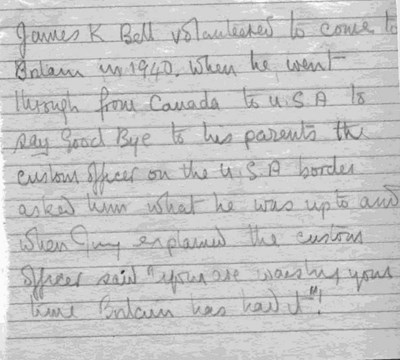 James K Bell volunteered to come to
Britain in 1940. When he went
through from Canada to U.S.A to
say Good Bye to his parents the
custom officer on the U.S.A border
asked him what he was up to and
when Jimmy explained the custom
officer said "your are waisting your
time Britain has had it"!